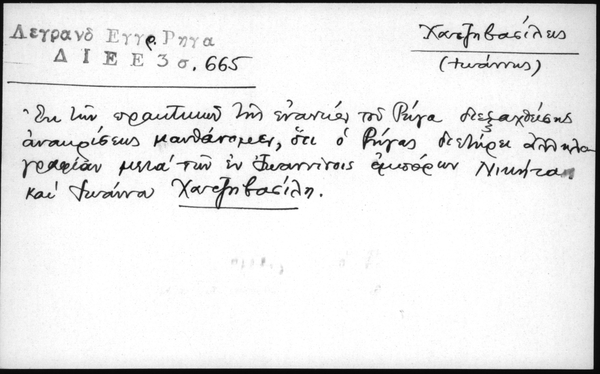 Λεγρανδ Εγγρ. Ρηγα
Δ Ι Ε Ε 3 σ. 665
Χατζηβασίλης
(Ιωάννης)
Ἐκ τῶν πρακτικῶν τῆς ἐναντίον τοῦ Ρήγα διεξαχθείσης
ἀνακρίσεως μανθάνομεν, ὅτι ὁ Ρήγας διετήρει ἀλληλο
γραφίαν μετά τῶν ἐν Ἰωαννίνοις ἐμπόρων Νικήτα
καί Ἰωάννα Χατζηβασίλη.